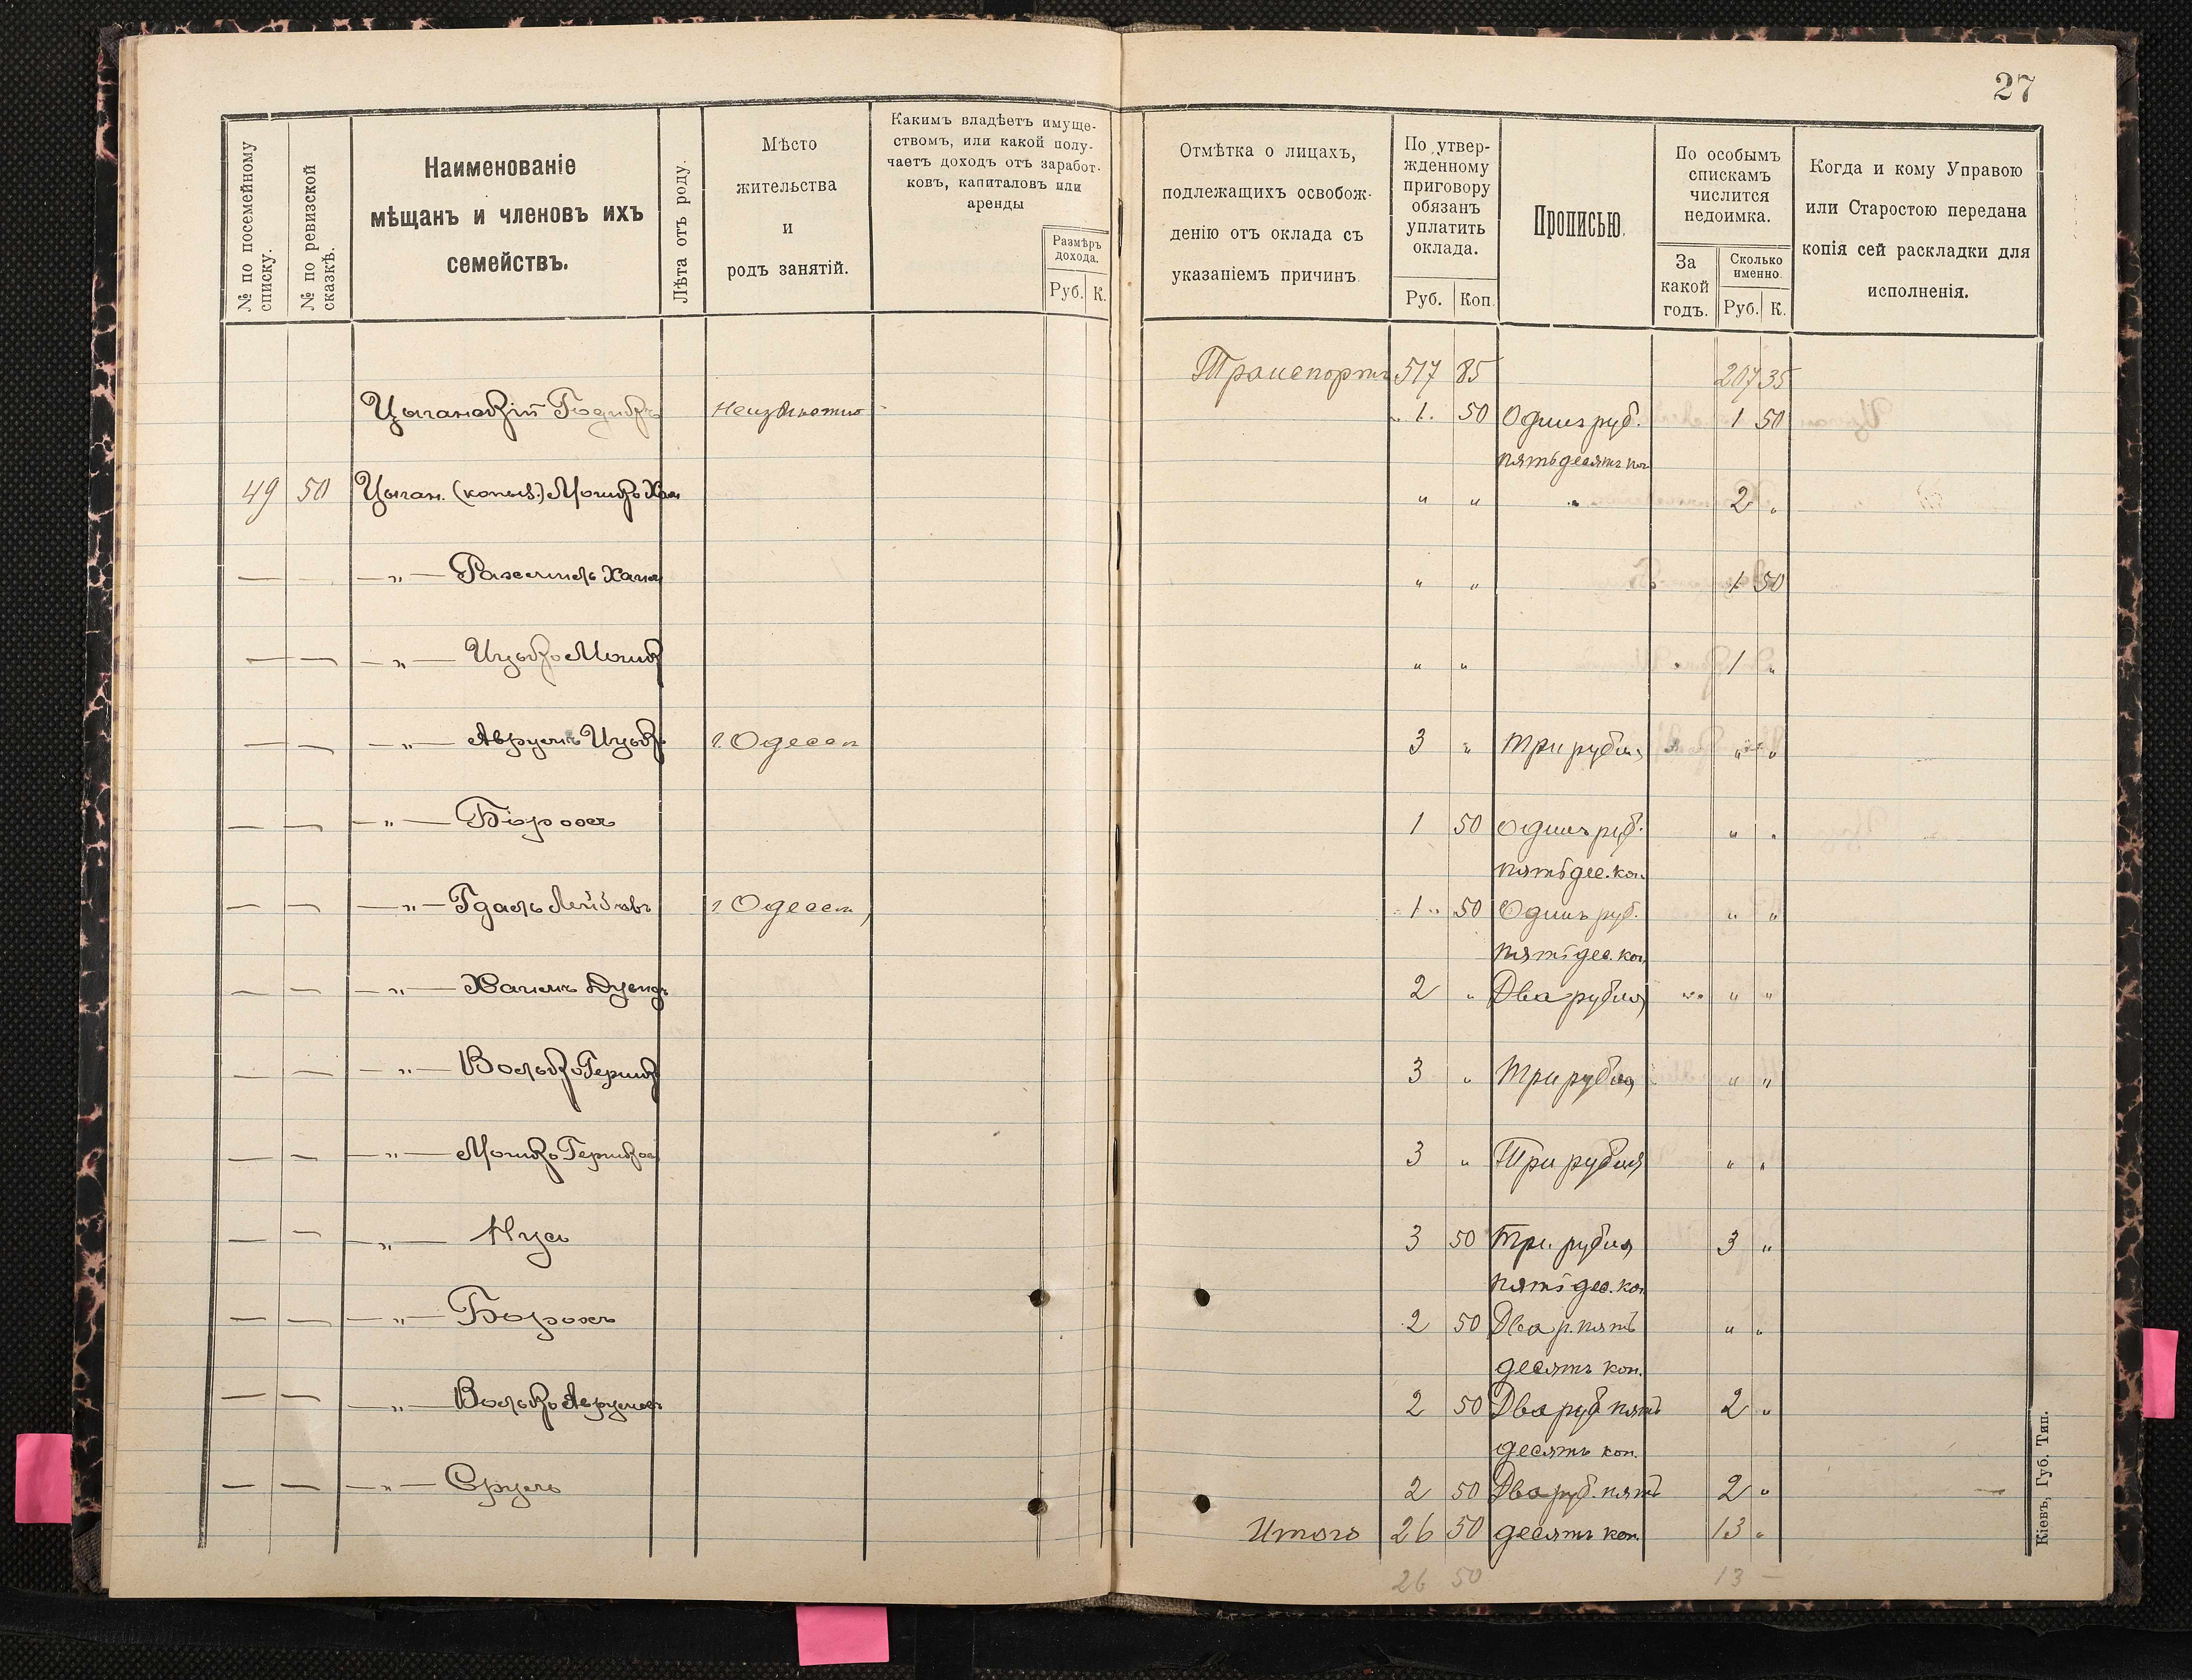 27
№ по посемейному списку.
№ по ревизской сказкѣ.
Наименованіе
мѣщанъ и членовъ ихъ
семействъ.
Лѣта отъ роду.
Мѣсто
жительства
и
родъ занятій.
Какимъ владѣетъ имуще-
ствомъ, или какой полу-
чаетъ доходъ отъ заработ-
ковъ, капиталовъ или
аренды
Размѣръ
дохода.
Руб. К.
Отмѣтка о лицахъ,
подлежащихъ освобож-
денію отъ оклада съ
указаніемъ причинъ.
По утвер-
жденному
приговору
обязанъ
уплатить
оклада.
Руб. Коп.
Прописью.
По особымъ
спискамъ
числится
недоимка.
За
какой
годъ.
Сколько
именно.
Руб. К.
Когда и кому Управою
или Старостою передана
копія сей раскладки для
исполненія.
Транспортъ 517 85 207 35
Неизвѣстно 1 50 Одинъ руб. 1 50
пятьдесятъ коп
49 50 Цыган. Мошко Хаи " " " 2 "
— — —"— Хаим " " 1 50
— — —"— Ицько Мошк " " 1 "
— — —"— Аврумъ Ицьк г. Одесса 3 " Три рубля " "
— — —"— Борохъ 1 50 Одинъ руб. " "
пятьдес. коп.
— — —"— Гдаль Лейбовъ г. Одесса 1 50 Одинъ руб. " "
пятьдес. коп.
— — —"— Хаимъ 2 " Два рубля " "
— — —"— Волько Гершк 3 " Три рубля " "
— — —"— Мошко Гершков 3 " Три рубля " "
— — —"— Нусь 3 50 Три рубля 3 "
пятьдес. коп.
— — —"— Борохъ 2 50 Два р. пять " "
десятъ коп.
— — —"— Волько Аврумов 2 50 Два руб. пять 2 "
десятъ коп.
— — —"— Сруль 2 50 Два руб. пять 2 "
Итого 26 50 десятъ коп. 13 "
26 50 13 —
Кіевъ, Губ. Тип.